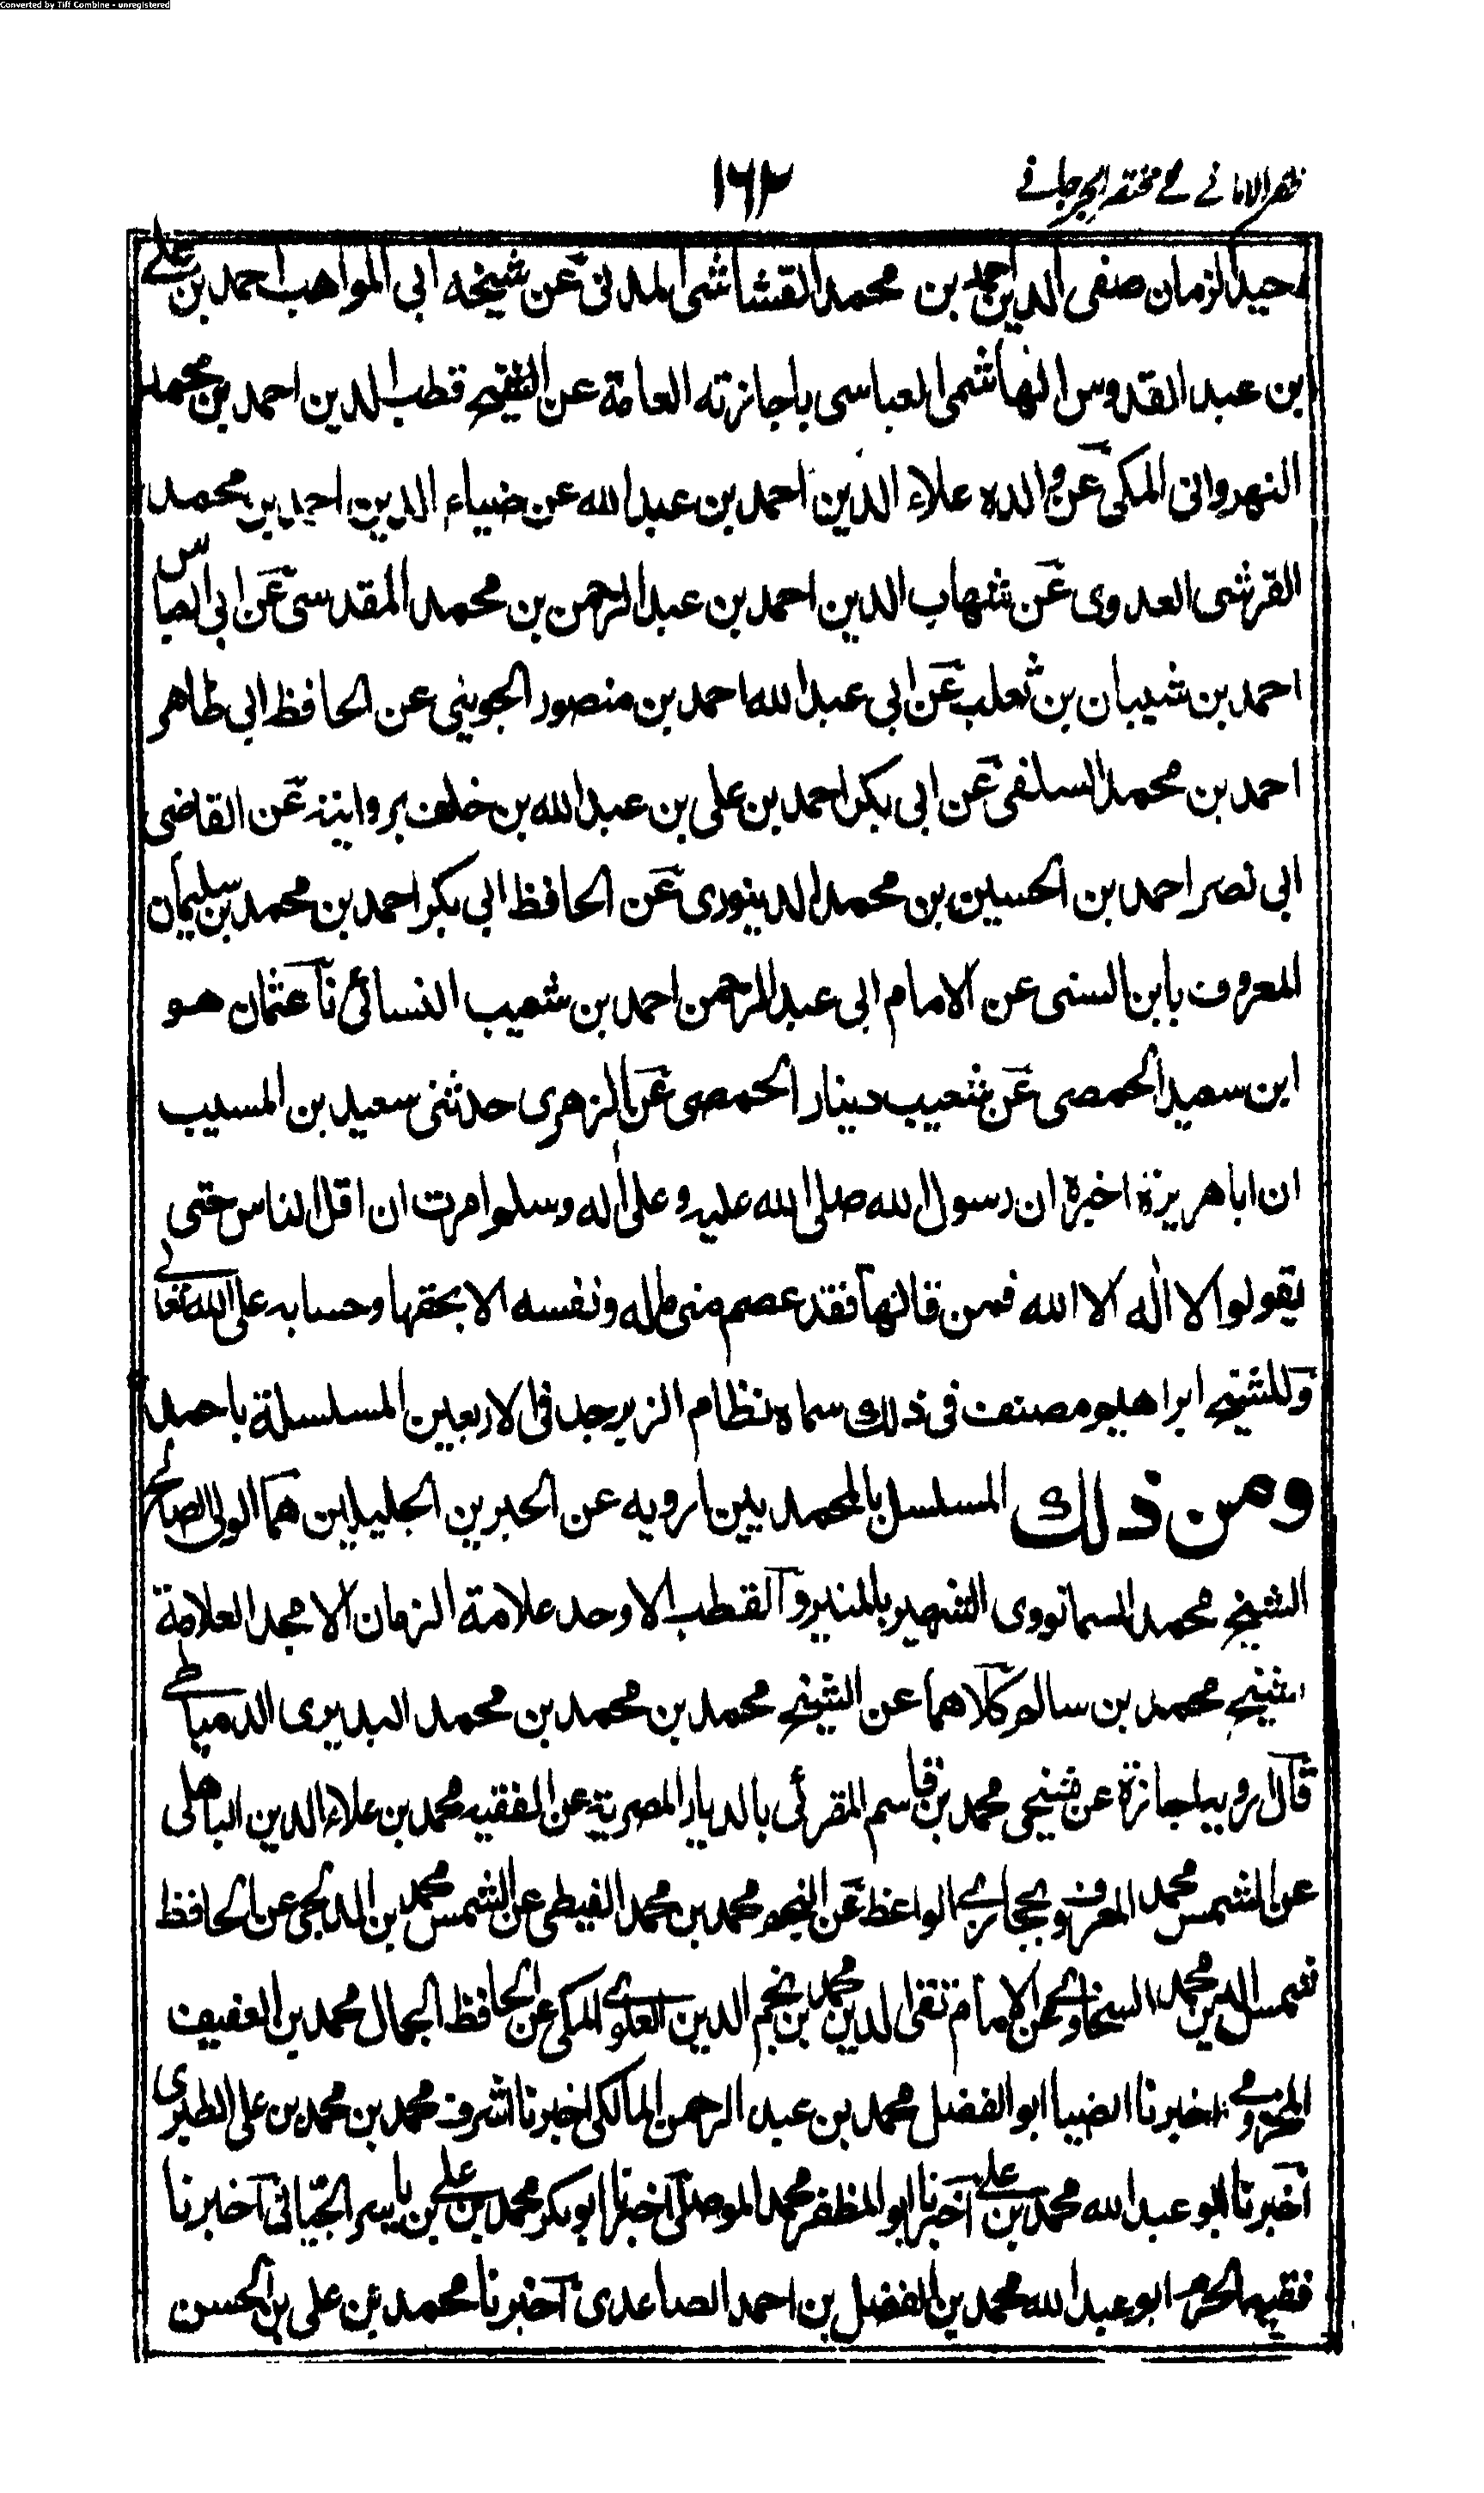 Converted by Tiff Combine - unregistered
ظفر الامانی فی مختصر الجرجانی
۱۶۲
وحید الزمان صفی الدین احمد بن محمد القشاشی المدنی عن شیخه ابی المواهب احمد بن علی
بن عبد القدوس الهاشمی العباسی باجازته العامة عن الفقیه قطب الدین احمد بن محمد
النهروانی المکی عن والده علاء الدین احمد بن عبد الله عن ضیاء الدین احمد بن محمد
القرشی العدوی عن شهاب الدین احمد بن عبد الرحمن بن محمد المقدسی عن ابی العباس
احمد بن شیبان بن ثعلب عن ابی عبد الله احمد بن منصور الجوینی عن الحافظ ابی طاهر
احمد بن محمد السلفی عن ابی بکر احمد بن علی بن عبد الله بن خلف بروایته عن القاضی
ابی نصر احمد بن الحسین بن محمد الدینوری عن الحافظ ابی بکر احمد بن محمد بن سلیمان
المعروف بابن السنی عن الامام ابی عبد الرحمن احمد بن شعیب النسائی نا عثمان هو
ابن سعید الحمصی عن شعیب دینار الحمصی عن الزهری حدثنی سعید بن المسیب
ان ابا هریرة اخبره ان رسول الله صلی الله علیه و علی اٰله وسلم امرت ان اقل الناس حتی
یقولوا لا اله الا الله فمن قالها فقد عصم منی ماله ونفسه الا بحقها وحسابه علی الله تعالی
وللشیخ ابراهیم مصنف فی ذلك سماه نظام الزبرجد فی الاربعین المسلسلة باحمد
ومن ذلك المسلسل بالمحمدیین ارویه عن الحبرین الجلیلین هما الولی الصالح
الشیخ محمد السمانووی الشهیر بالمنیر والقطب الاوحد علامة الزمان الامجد العلامة
شیخی محمد بن سالم کلاهما عن الشیخ محمد بن محمد بن محمد البدیری الدمیاطی
قال ارویه اجازة عن شیخی محمد بن قاسم المقرئی بالدیار المصریة عن الفقیه محمد بن علاء الدین البابلی
عن الشمس محمد المعروف بحجازی الواعظ عن النجم محمد بن محمد الغیطی عن الشمس محمد بن الدلجی عن الحافظ
شمس الدین محمد السخاوی عن الامام تقی الدین محمد بن نجم الدین العلوی المکی عن الحافظ الجمال محمد بن العفیف
المخزومی اخبرنا الضیا ابو الفضل محمد بن عبد الرحمن المالکی اخبرنا اشرف محمد بن محمد بن علی الطبری
اخبرنا ابو عبد الله محمد بن علی اخبرنا ابو المظفر محمد الموصلی اخبرنا ابو بکر محمد بن علی بن یاسر الجیانی اخبرنا
فقیه الحرم ابو عبد الله محمد بن الفضل بن احمد الصاعدی اخبرنا محمد بن علی بن الحسن